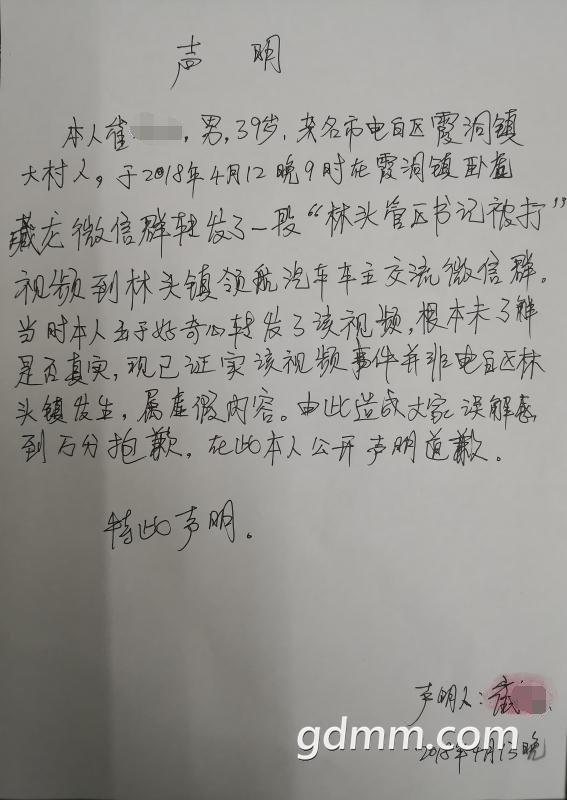 声 明
本人崔，男，39岁，茂名市电白区霞洞镇
大村人，于2018年4月12晚9时在霞洞镇卧虎
藏龙微信群转发了一段“林头管区书记被打”
视频到林头镇领航汽车车主交流微信群。
当时本人出于好奇心转发了该视频，根本未了解
是否真实，现已证实该视频事件并非电白区林
头镇发生，属虚假内容。由此造成大家误解感
到万分抱歉，在此本人公开声明道歉。
特此声明。
声明人：崔
gdmm.com
2018年4月13晚